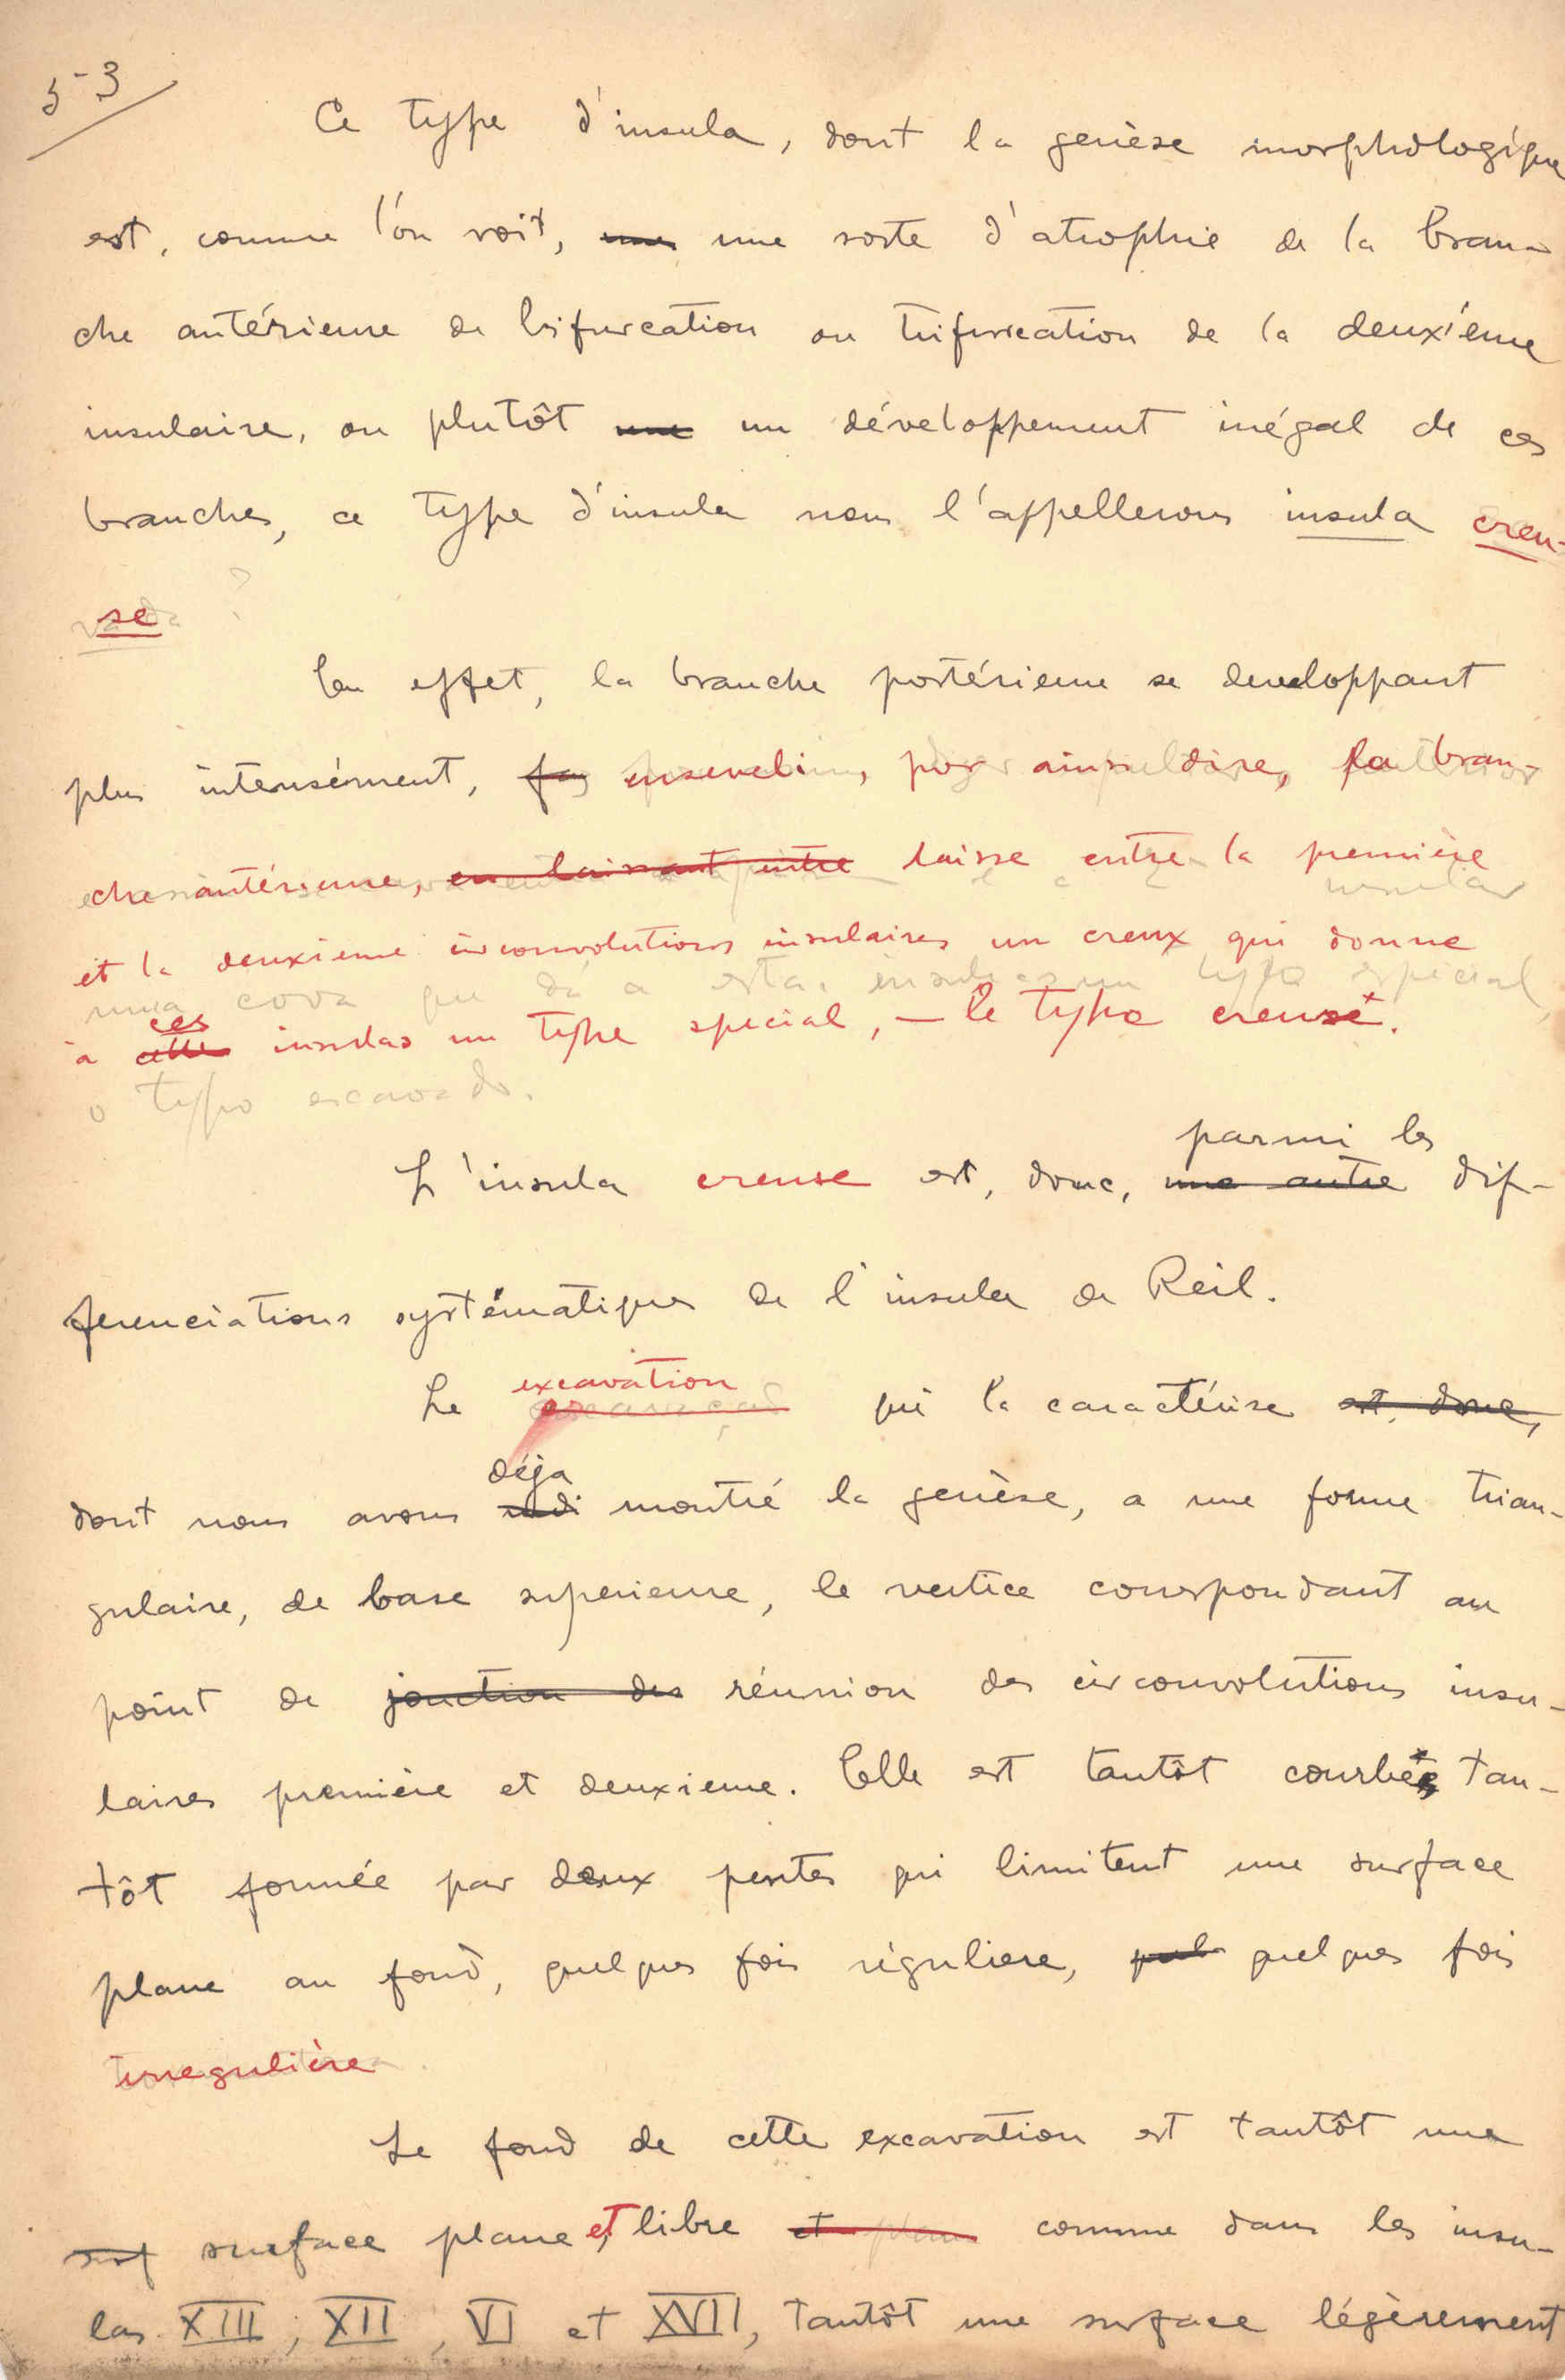 53
Ce type d'insula, dont la genèse morphologique
est, comme l'on voit, une une sorte d'atrophie de la bran-
che antérieure de bifurcation ou trifurcation de la deuxième
insulaire, ou plutôt une un développement inégal de ces
branches, ce type d'insula nous l'appellerons insula creu-
se
En effet, la branche postérieure se developpant
plus intensément, ensevelin, por ainsi dire, la bran-
che antérieure, en laissant entre laisse entre la première
insular
et la deuxieme circonvolutions insulaires un creux qui donne
uma cova que dá a estas insulas um typo especial,
ces
à cette insulas un type special, — le type creuse.
o typo excavado.
parmi les
L'insula creuse est, donc, une autre dif-
ferenciations systématiques de l'insula de Reil.
excavation
Le qui la caractérise est, donc,
déja
dont nous avons montré la genèse, a une forme trian-
gulaire, de base superieure, le vertice correspondant au
point de jonction des réunion des circonvolutions insu-
laires première et deuxieme. Elle est tantôt courbée, tan-
tôt formée par deux pentes qui limitent une surface
plane au fond, quelques fois réguliere, quelques fois
irregulière
Le fond de cette excavation est tantôt une
surf surface plane et libre et plane comme dans les insu-
las XIII, XII, VI et XVII, tantôt une surface légèrement